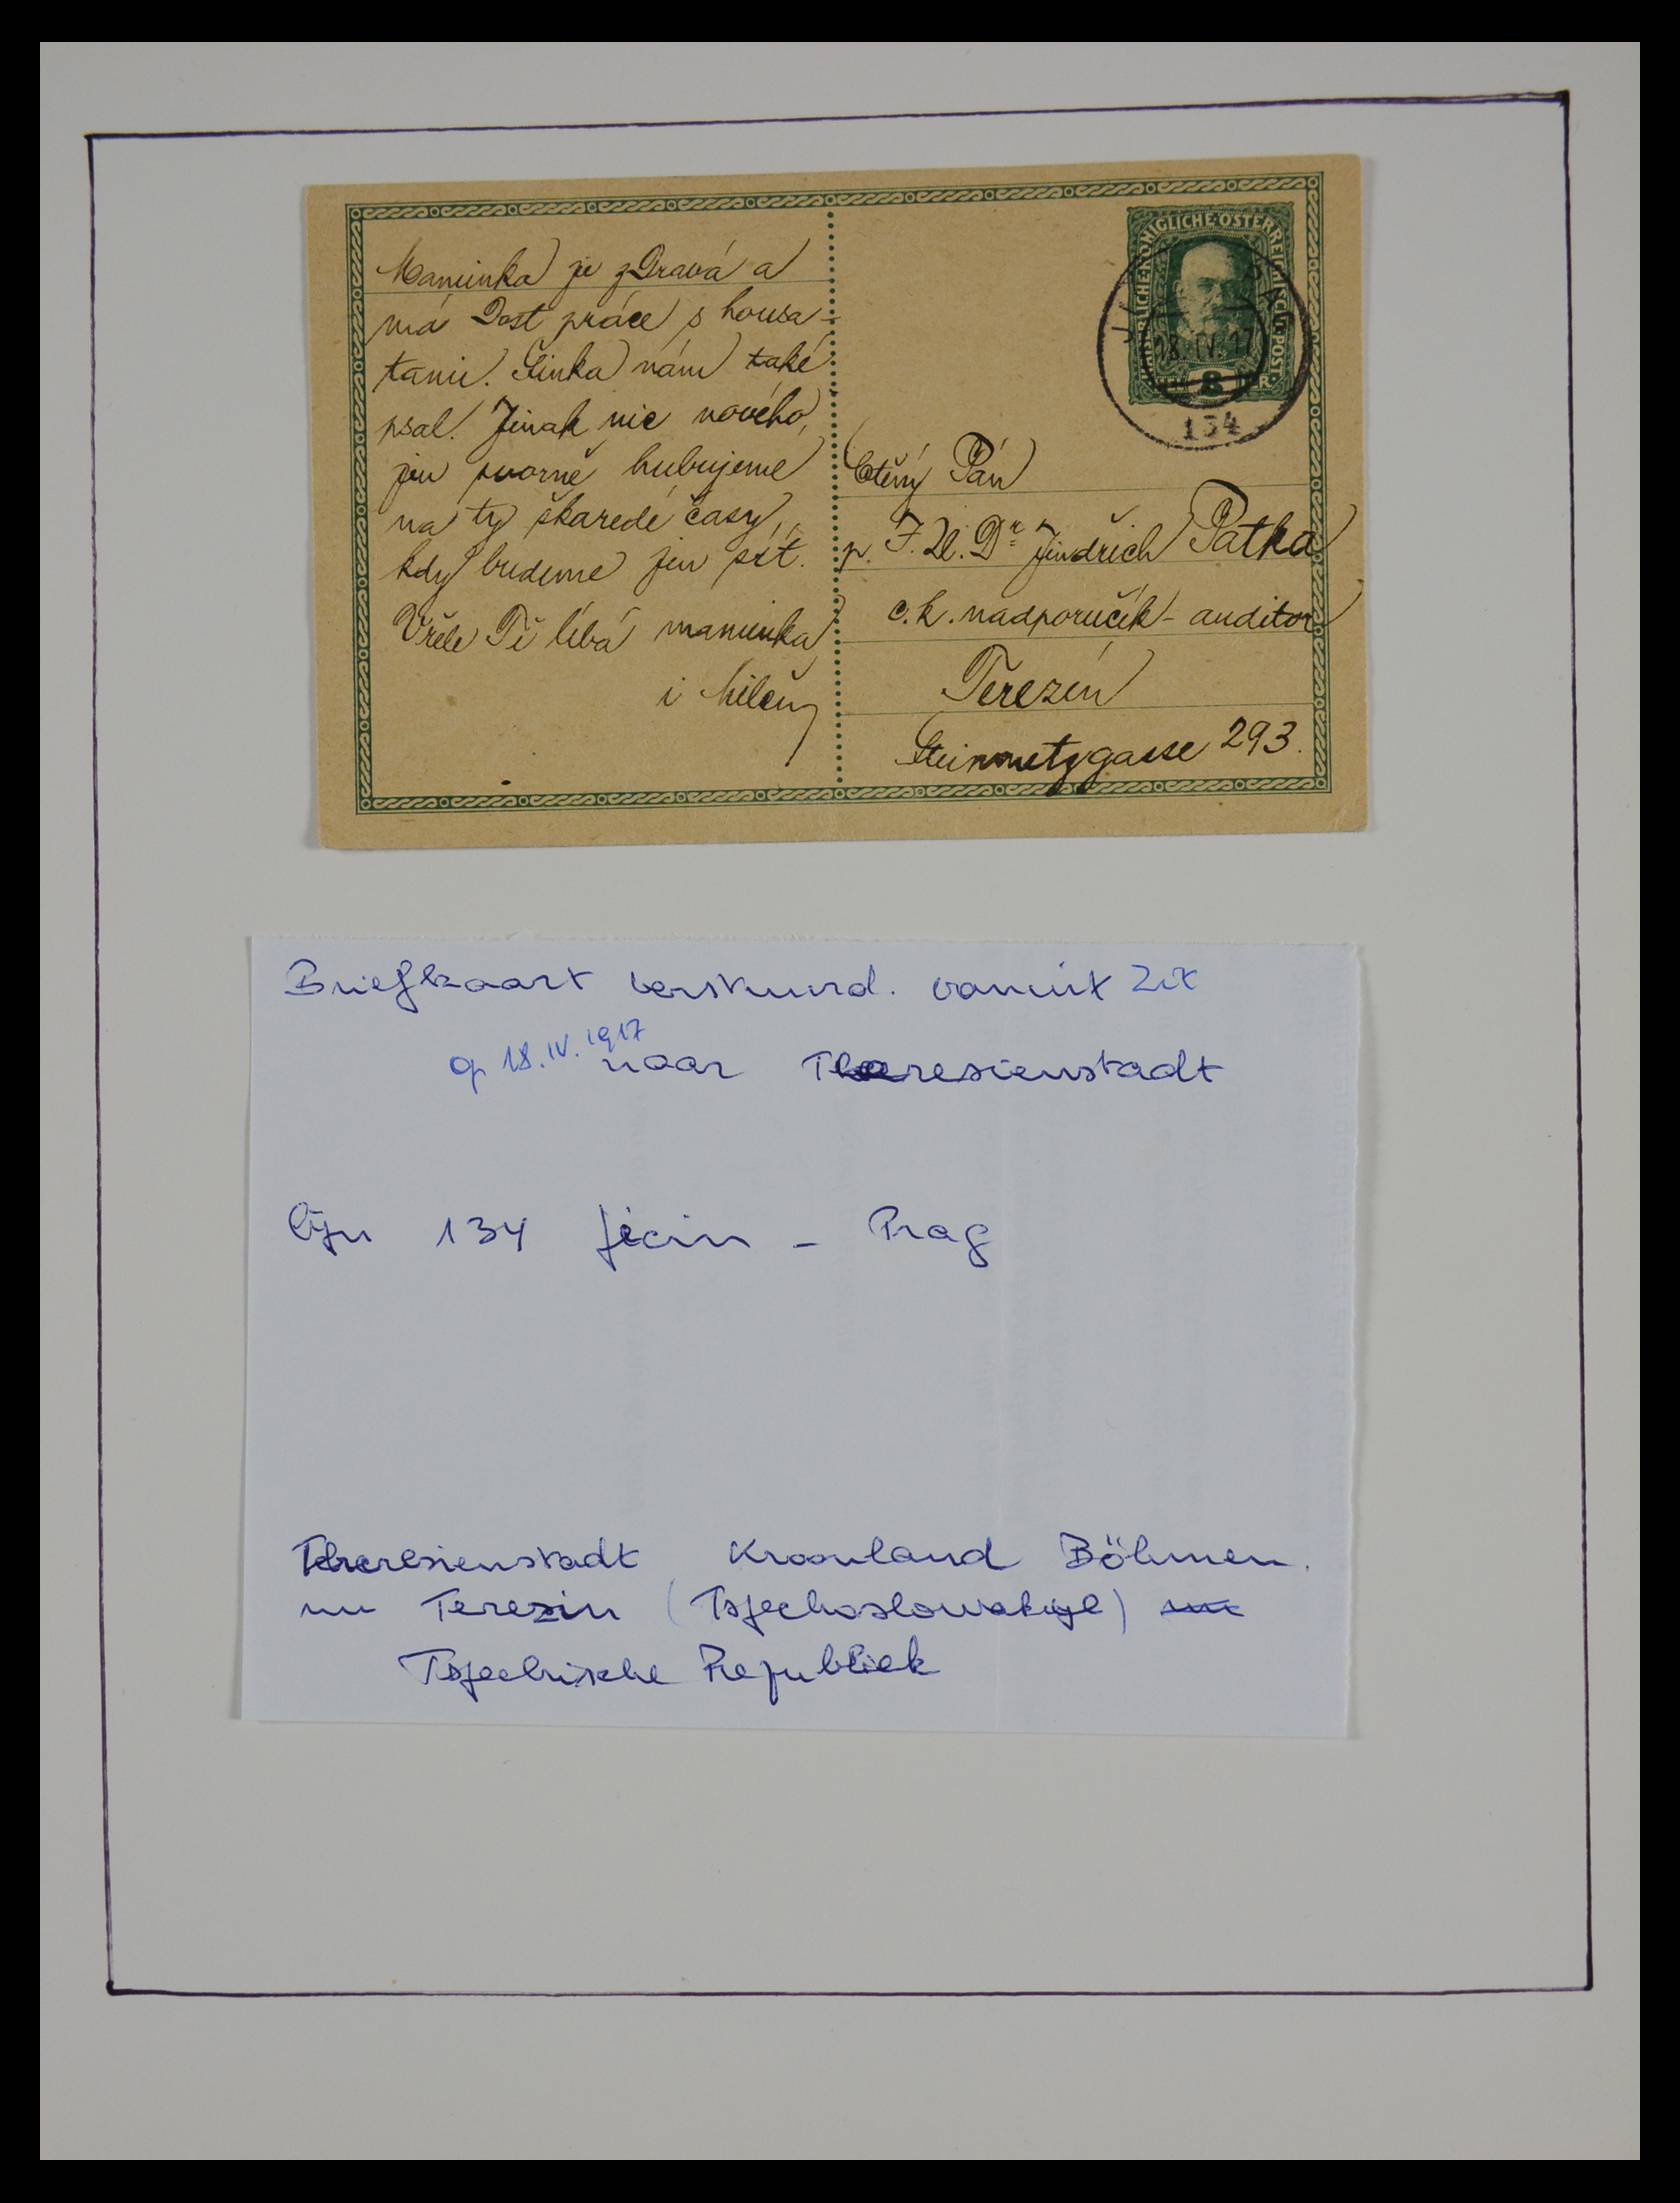 Maminka je zdravá a
má dost práce s housa-
tami. Činka nám také
psal. Jinak nic nového,
jen svorně hubujeme
na ty škaredé časy,
kdy budeme jen sít.
Vřele Tě líbá maminka
i
KAISERLICHE KÖNIGLICHE ÖSTERREICHISCHE POST
18.IV.17
8
134
Ctěný Pán
p. J. U. Dr Jindřich Patka
c. k. nadporučík - auditor
Terezín
Steinmetzgasse 293.
Briefkaart verstuurd. vanuit
op 18.IV.1917
naar Theresienstadt
lijn 134 Jicin - Prag
Theresienstadt Kroonland Böhmen.
nu Terezin (Tsjechoslowakije)
Tsjechische Republiek